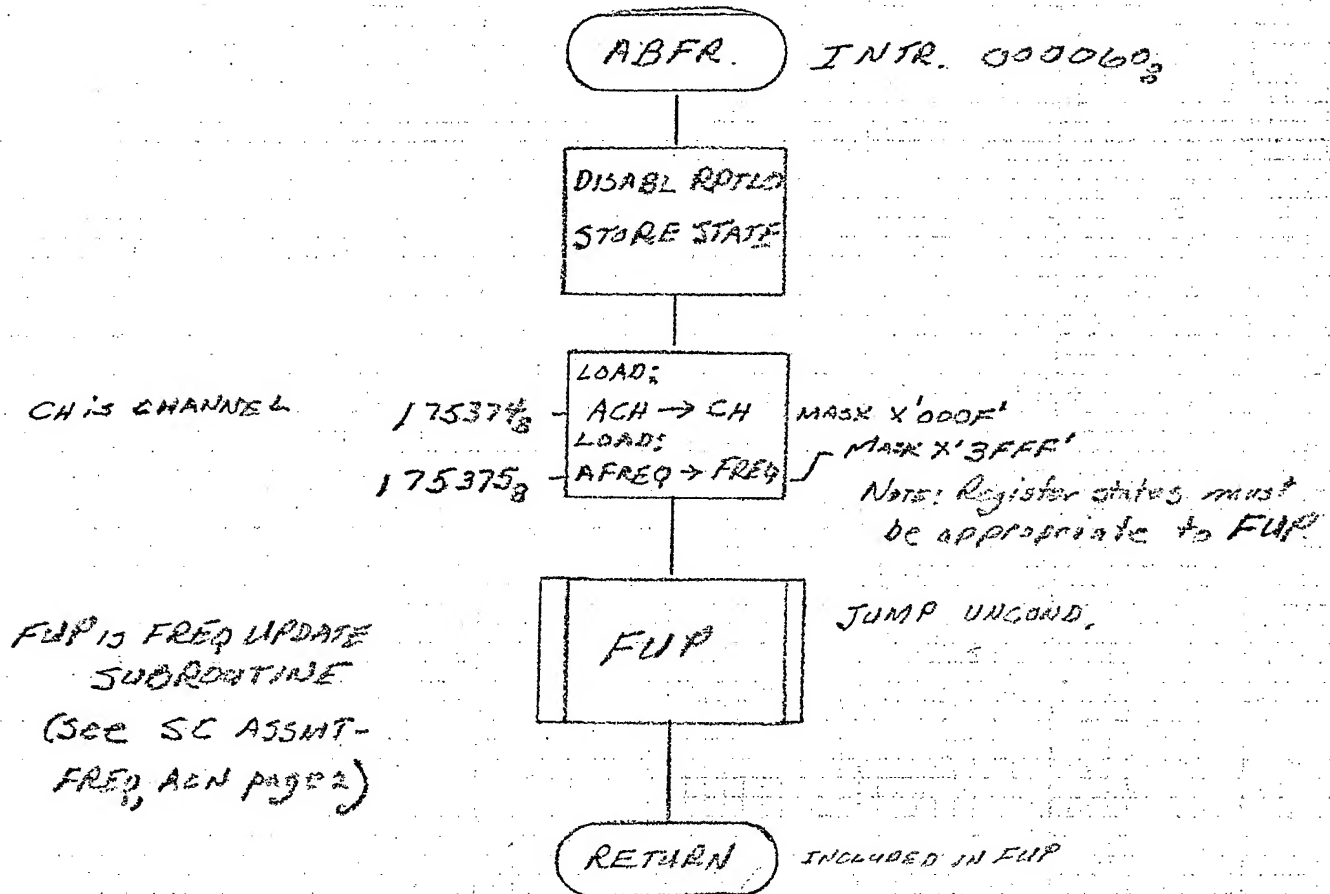 ABFR. INTR. 000060₈
DISABL RPTLD
STORE STATE
LOAD:
CH is CHANNEL 175374₈ ACH → CH MASK X'000F'
LOAD:
175375₈ AFREQ → FREQ MASK X'3FFF'
NOTE: Register states must
be appropriate to FUP.
FUP JUMP UNCOND.
FUP is FREQ UPDATE
SUBROUTINE
(See SC ASSMT-
FREQ, ACN page 2)
RETURN INCLUDED IN FUP